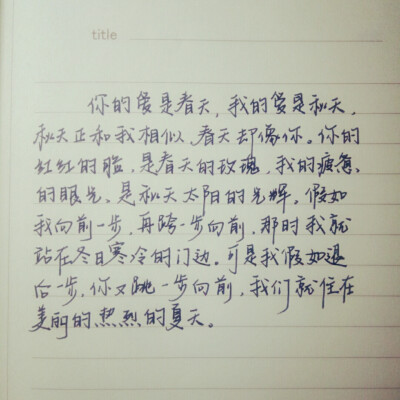 title
你的爱是春天,我的爱是秋天,
秋天正和我相似,春天却像你。你的
红红的脸,是春天的玫瑰,我的疲惫
的眼光,是秋天太阳的光辉。假如
我向前一步,再跨一步向前,那时我就
站在冬日寒冷的门边。可是我假如退
后一步,你又跳一步向前,我们就住在
美丽的热烈的夏天。